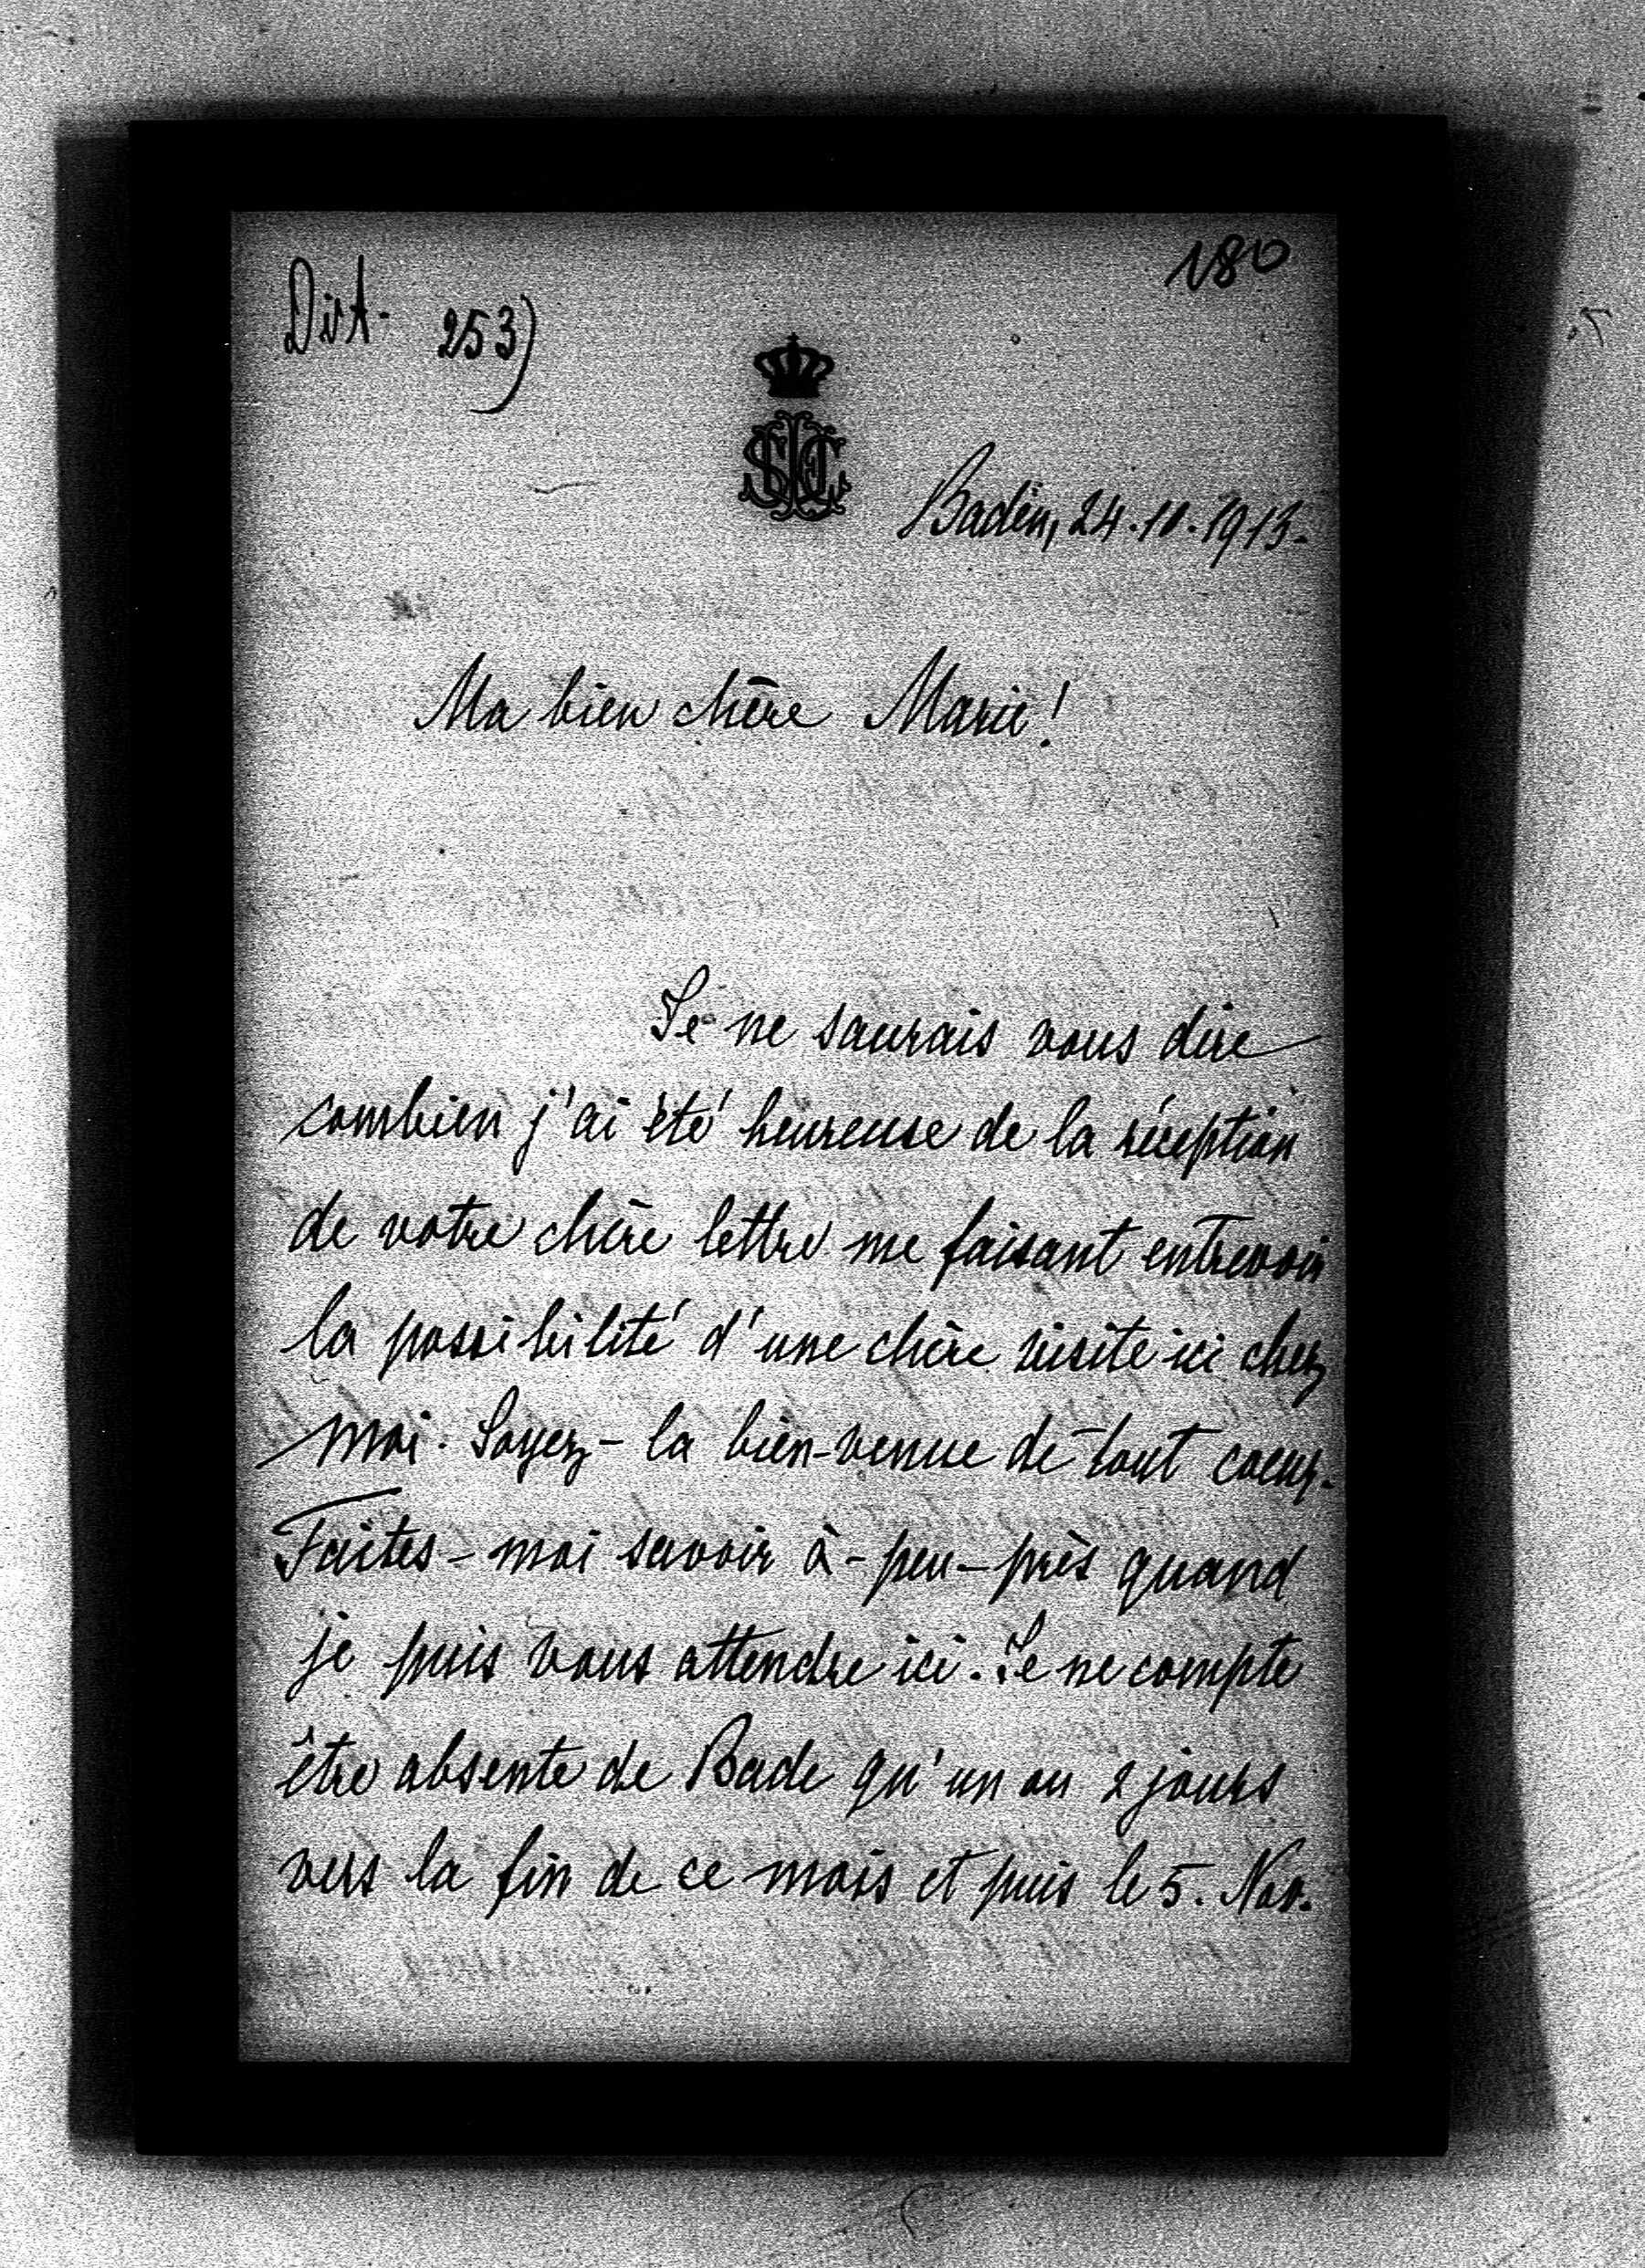 180
253)
Baden, 24.10.1913.
Ma bien chère Marie!
Je ne saurais vous dire
combien j'ai été heureuse de la réception
de votre chère lettre me faisant entrevoir
la possibilité d'une chère visite ici chez
moi. Soyez-la bien-venue de tout coeur.
Faites-moi savoir à-peu-près quand
je puis vous attendre ici. Je ne compte
être absente de Bade qu'un ou 2 jours
vers la fin de ce mois et puis le 5. Nov.